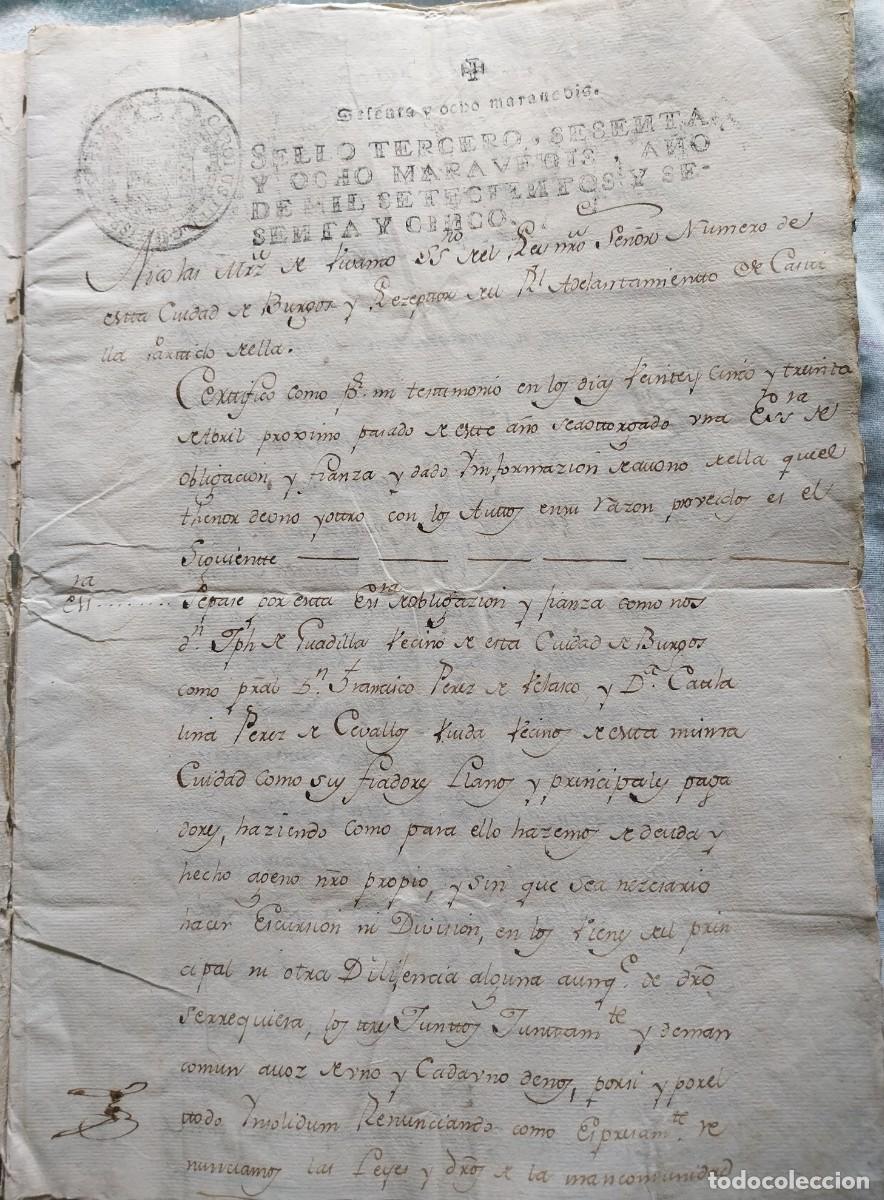 Sesenta y ocho marauedis.
SELLO TERCERO, SESENTA
Y OCHO MARAVEDIS, AÑO
DE MIL SETECIENTOS Y SE-
SENTA Y CINCO.
Nicolas Mrz de SS.no del Rey nrõ Señor Numero de
estta Ciudad de Burgos y Rezeptor del Rl Adelanttamiento de Casti
lla Partido de ella.
Certifico como Pr. mi testimonio en los dias Veintey Cinco y treinta
de Abril proximo pasado de estte año seaottorgado vna Ess.ra de
obligacion, y fianza y dado Ynformazion deavono de ella quiel
thenor deuno yottro con los Auttos ensu razon proveidos es el
Siguientte
Ess.ra Sepase por estta Ess.ra de obligazion y fianza como nos
d.n Jph de Guadilla Vecino de estta Ciudad de Burgos
como prãl D.n Francisco Perez de Velasco, y D.a Catta
lina Perez de Cevallos Viuda Vecinos de estta misma
Ciudad como sus fiadores Llanos y principales paga
dores, haziendo como para ello hazemos de deuda y
hecho ageno nrõ propio, y sin que sea nezesario
hacer Escursion ni Division, en los Vienes del prin
cipal ni otra Dilifencia alguna aunq.e de drõ
serrequiera, los ttres Junttos Junttam.te y deman
comun avoz de vno y Cadavno denos, porsi y porel
ttodo Ynsolidum Renunciando como Espresam.te re
nunciamos las Leyes y drõs de la mancomunidad
todocoleccion